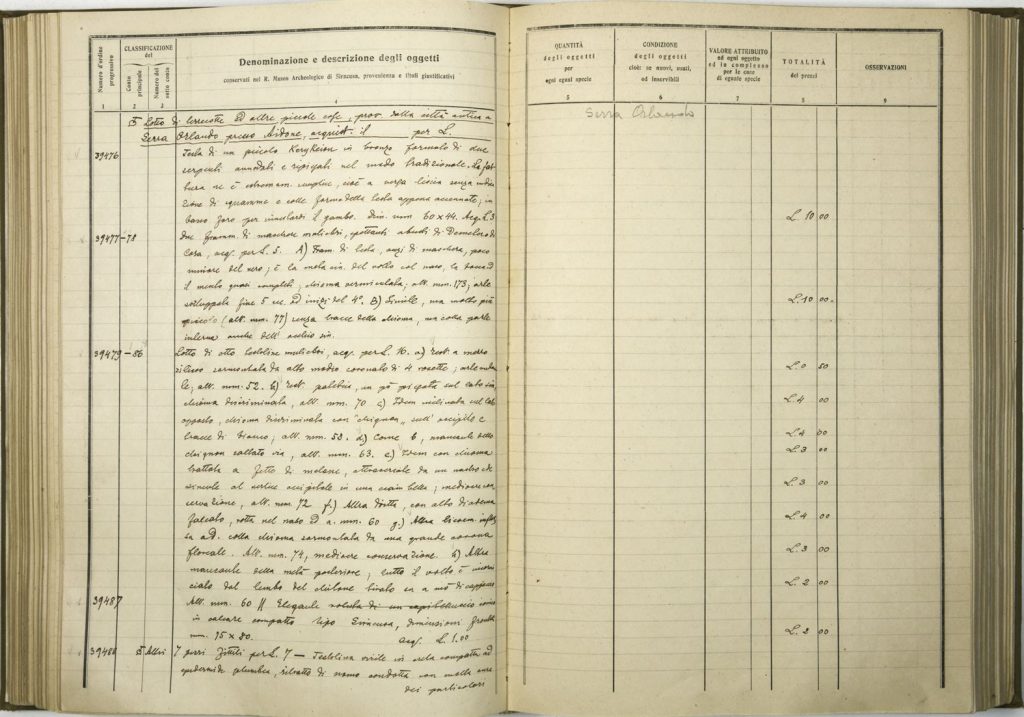 Numero d'ordine progressivo
CLASSIFICAZIONE del
Conto principale
Numero del sotto conto
Denominazione e descrizione degli oggetti
conservati nel R. Museo Archeologico di Siracusa, provenienza e titoli giustificativi
1 2 3 4
Lotto di terrecotte ed altre piccole cose, prov. dalla città antica a
Serra Orlando presso Aidone, acquist. il per L.
39476 Testa di un piccolo Kerykeion in bronzo formato di due
serpenti annodati e ripiegati nel modo tradizionale. La fat-
tura ne è estremam. semplice, cioè a verga liscia senza indica
zione di squamme e colle forme della testa appena accennate; in
basso foro per innestarvi il gambo. Dim. mm 60 x 44. Acq. L. 3
39477-78 due framm. di maschere muliebri, spettanti a busti di Demeter o di
Cora, acq. per L. 5. A) Fram. di testa, anzi di maschera, poco
minore del vero; è la metà sin. del volto col naso, la bocca ed
il mento quasi completi; chioma vermiculata; alt. mm. 173; arte
sviluppata fine 5 sec. ed inizi del 4°. B) Simile, ma molto più
piccolo (alt. mm. 77) senza tracce della chioma, ma colla parte
interna anche dell' occhio sin.
39479-86 Lotto di otto testoline muliebri, acq. per L. 16. a) test. a mezzo
rilievo sormontata da alto modio coronato di 4 rosette; arte
alt. mm. 52. b) test. un pò piegata sul lato sin.
chioma discriminata, alt. mm. 70 c) Idem inclinata sul lato
opposto, chioma discriminata con "chignon" sull' occipite e
tracce di bianco; alt. mm. 50. d) Come b, mancante dello
chignon saltato via, alt. mm. 63. e) Idem con chioma
trattata a fette di melone, attraversate da un nastro che
si al vertice occipitale in una ciambella; mediocre con
servazione, alt. mm. 72 f) Altra diritta, con alto diadema
falcato, rotta nel naso ed a. mm. 60 g.) Altra
sa a d. colla chioma sormontata da una grande corona
floreale. Alt. mm. 74, mediocre conservazione. h) Altra
mancante della metà posteriore; tutto il volto è incorni
ciato dal lembo del chitone tirato su a mò di cappuccio
39487 Alt. mm. 60 // Elegante voluta di un capitelluccio ionico
in calcare compatto tipo Siracusa, dimensioni fronte
mm. 75 x 80. Acq. L. 1.00
39488 Altri 7 pezzi fittili per L. 7 — Testolina virile in creta compatta ad
epidermide plumbea, ritratto di uomo condotta con molta cura
dei particolari
QUANTITÀ degli oggetti per ogni egual specie
CONDIZIONE degli oggetti cioè: se nuovi, usati, od inservibili
VALORE ATTRIBUITO ad ogni oggetto od in complesso per le cose di eguale specie
TOTALITÀ dei prezzi
OSSERVAZIONI
5 6 7 8 9
Serra Orlando
L. 10 00
L. 10 00.
L. 0 50
L. 4 00
L. 4 00
L. 3 00
L. 3 00
L. 4 00
L. 3 00
L. 2 00
L. 2 00